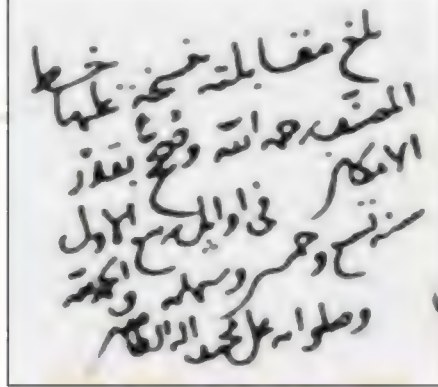 بلغ مقابلة بنسخة عليها خط
المصنف رحمه الله وصح بقدر
الامكان في اوائل ربيع الاول
سنة تسع وخمسين وسبعمائة والحمد لله
وصلواته على محمد وآله الطاهرين